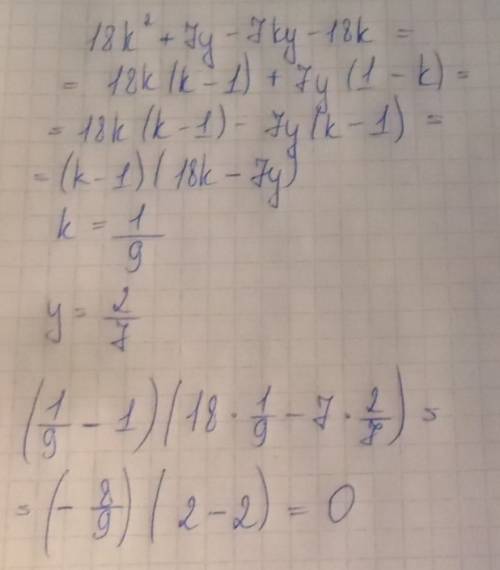 18k² + 7y - 7ky - 18k =
= 18k (k - 1) + 7y (1 - k) =
= 18k (k - 1) - 7y (k - 1) =
= (k - 1) (18k - 7y)
k = 1/9
y = 2/7
(1/9 - 1) (18 · 1/9 - 7 · 2/7) =
= (- 8/9) (2 - 2) = 0